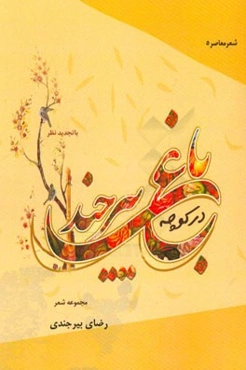 شعر معاصر ۵
با تجدید نظر
در کوچه
باغهای بیرجند
مجموعه شعر
رضای بیرجندی